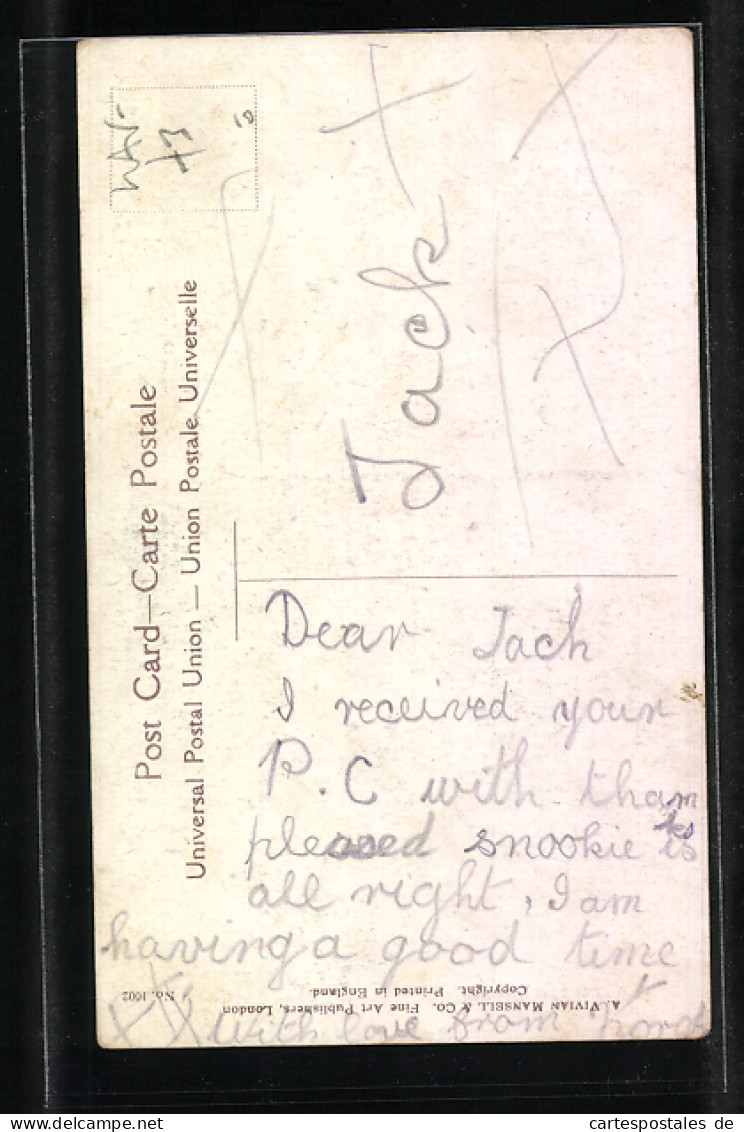 Post Card—Carte Postale
Universal Postal Union — Union Postale Universelle
Jack
Dear Jack
I received your
P.C with than
ks
pleased snookie is
all right, I am
having a good time
with love from
A. VIVIAN MANSELL & Co. Fine Art Publishers, London
Copyright. Printed in England.
No. 1002
cartespostales.de